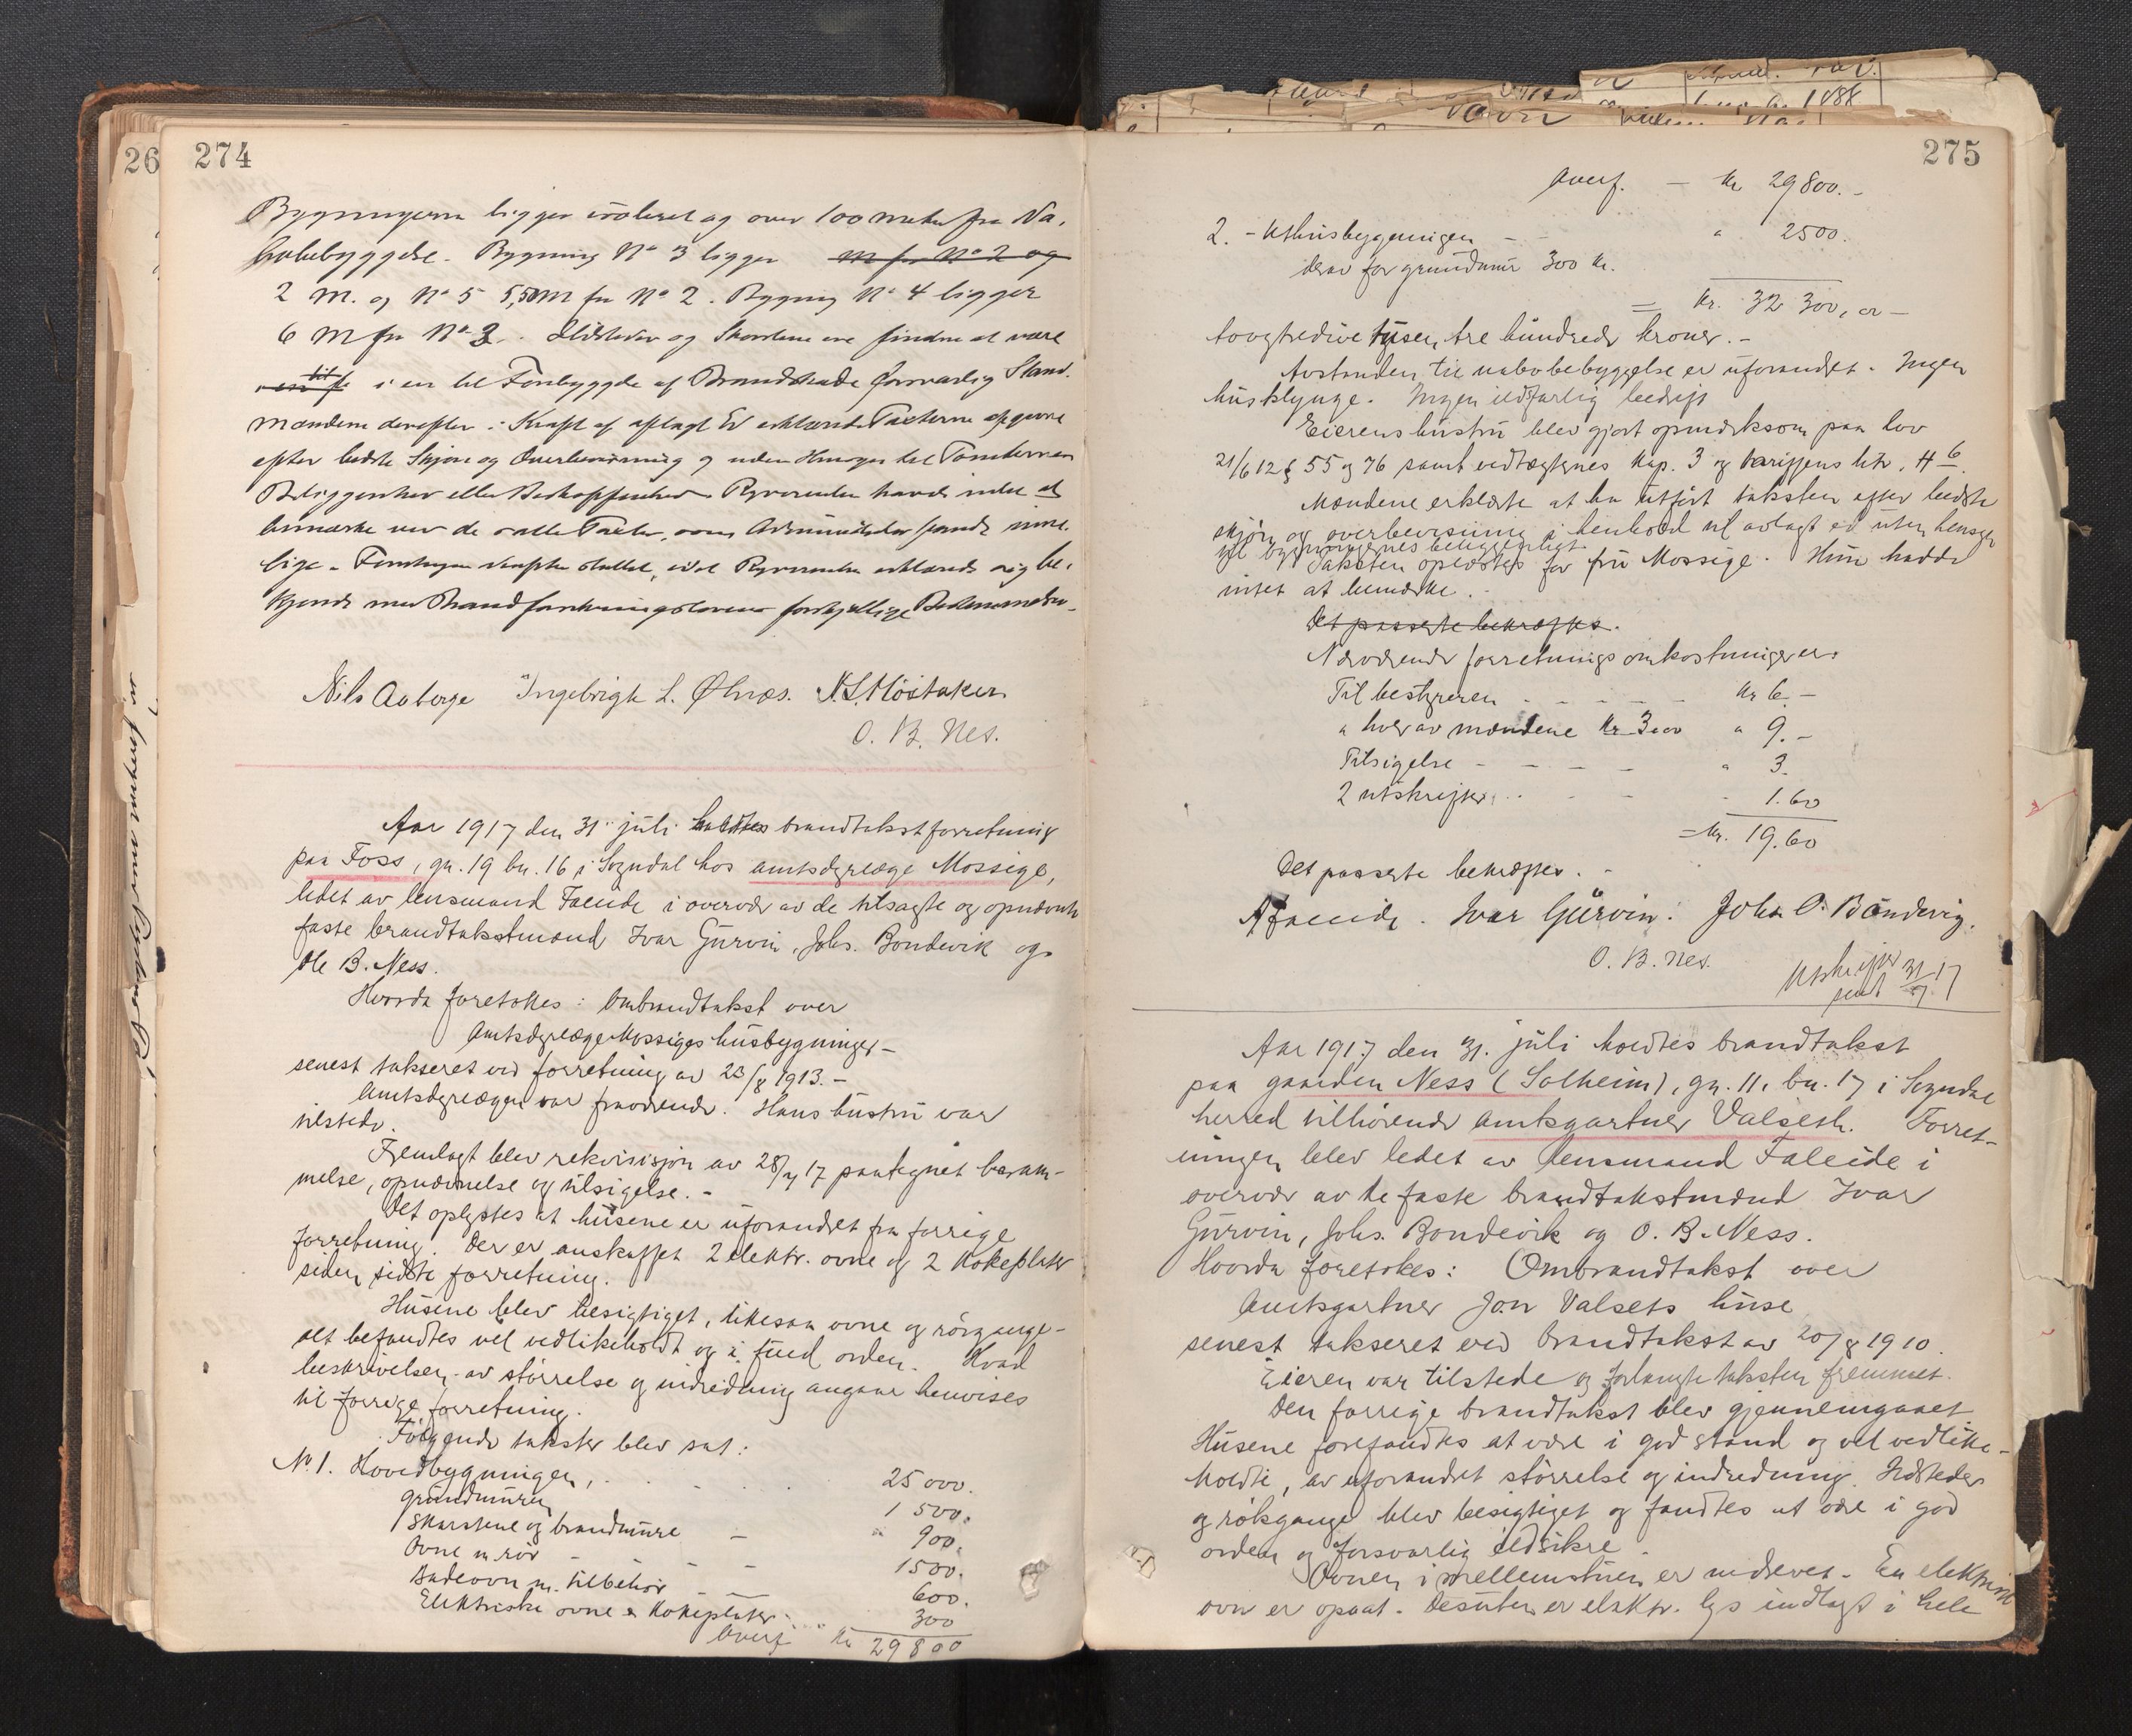 274
Bygningerne ligger isoleret og over 100 meter fra Na-
bobebyggelse. Bygning No 3 ligger m fra No 2 og
2 M. og No 5 5,50 M fra No 2. Bygning No 4 ligger
6 M fra No 3. Ildsteder og Skorstene ere findne at være
i en til Forebyggelse af Brandskade forsvarlig Stand.
Mændene derefter i Kraft af aflagt Ed erklærede Taxterne afgivne
efter bedste Skjøn og Overbevisning og uden Hensyn til Tomternes
Beliggenhed eller Beskaffenhed. Rekvirenten havde intet at
bemærke ved de satte Taxter, som Administrator fandt rime-
lige. Forretningen derefter sluttet, idet Rekvirenten erklærede sig be-
kjendt med Brandforsikringslovens forskjellige Bestemmelser.
Nils Aaberge Ingebrigt L. Ølnæs. N. L. Høitaker
O. B. Nes.
Aar 1917 den 31 juli holdtes brandtakstforretning
paa Foss, gn. 19 bn. 16 i Sogndal hos amtsdyrlæge Mossige,
ledet av lensmand Faleide i overvær av de tilsagte og opnævnte
faste brandtakstmænd Ivar Gurvin, Johs. Bondevik og
Ole B. Ness.
Hvorda foretokes: Ombrandtakst over
Amtsdyrlæge Mossiges husbygninger –
senest takseret ved forretning av 23/8 1913. –
Amtsdyrlægen var fraværende. Hans hustru var
tilstede.
Fremlagt blev rekvisisjon av 28/7 17 paategnet beram-
melse, opnævnelse og tilsigelse. –
Det oplystes at husene er uforandret fra forrige
forretning. Der er anskaffet 2 elektr. ovne og 2 kokeplater
siden sidste forretning.
Husene blev besigtiget, likesaa ovne og rørgange –
alt befandtes vel vedlikeholdt og i fuld orden. Hvad
beskrivelsen av størrelse og indredning angaar henvises
til forrige forretning.
Følgende takster blev sat:
No 1. Hovedbygningen, 25 000.
grundmuren 1 500.
skorstene og brandmure – " 900.
Ovne m rør – – – 1500.
Badeovn m. tilbehør – – 600.
Elektriske ovne & kokeplater 300
Overf. Kr 29 800
275
Overf. – Kr 29 800. –
2. – Uthusbygningen – – " 2500.
derav for grundmur 300 kr.
= Kr. 32 300, oo –
toogtredive tusen tre hundrede kroner. –
Avstanden til nabobebyggelse er uforandret. Ingen
husklynge. Ingen ildfarlig bedrift
Eierens hustru blev gjort opmerksom paa lov
21/6 12 § 55 og 76 samt vedtægtenes kap. 3 og tariffens litr. H 6.
Mændene erklærte at ha utført taksten efter bedste
skjøn og overbevisning i henhold til avlagt ed uten hensyn
til bygningernes beliggenhet
Taksten oplæstes for fru Mossige. Hun hadde
intet at bemerke.
Det passerte bekræftes.
Nærværende forretnings omkostninger er:
Til bestyreren – – – – – Kr 6. –
" hver av mændene Kr 3 oo " 9. –
Tilsigelse – – – – – " 3.
2 utskrifter – – 1.60
= Kr. 19.60
Det passerte bekræftes. –
A Faleide. Ivar Gurvin. Johs O. Bondevig.
O. B. Nes.
Utskrifter 31/7 17
sendt
Aar 1917 den 31. juli holdtes brandtakst
paa gaarden Ness (Solheim), gn. 11, bn. 17 i Sogndal
herred tilhørende amtsgartner Valseth. Forret-
ningen blev ledet av lensmand Faleide i
overvær av de faste brandtakstmænd Ivar
Gurvin, Johs. Bondevik og O. B. Ness.
Hvorda foretokes: Ombrandtakst over
Amtsgartner Jon Valsets huse
senest takseret ved brandtakst av 20/8 1910.
Eieren var tilstede og forlangte taksten fremmet.
Den forrige brandtakst blev gjennemgaaet
Husene forefandtes at være i god stand og vel vedlike-
holdte, av uforandret størrelse og indredning. Ildsteder
og røkgange blev besigtiget og fandtes at være i god
orden og forsvarlig ildsikre.
Ovnen i mellemstuen er nedrevet. En elektrisk
ovn er opsat. Desuten er elektr. lys indlagt i hele